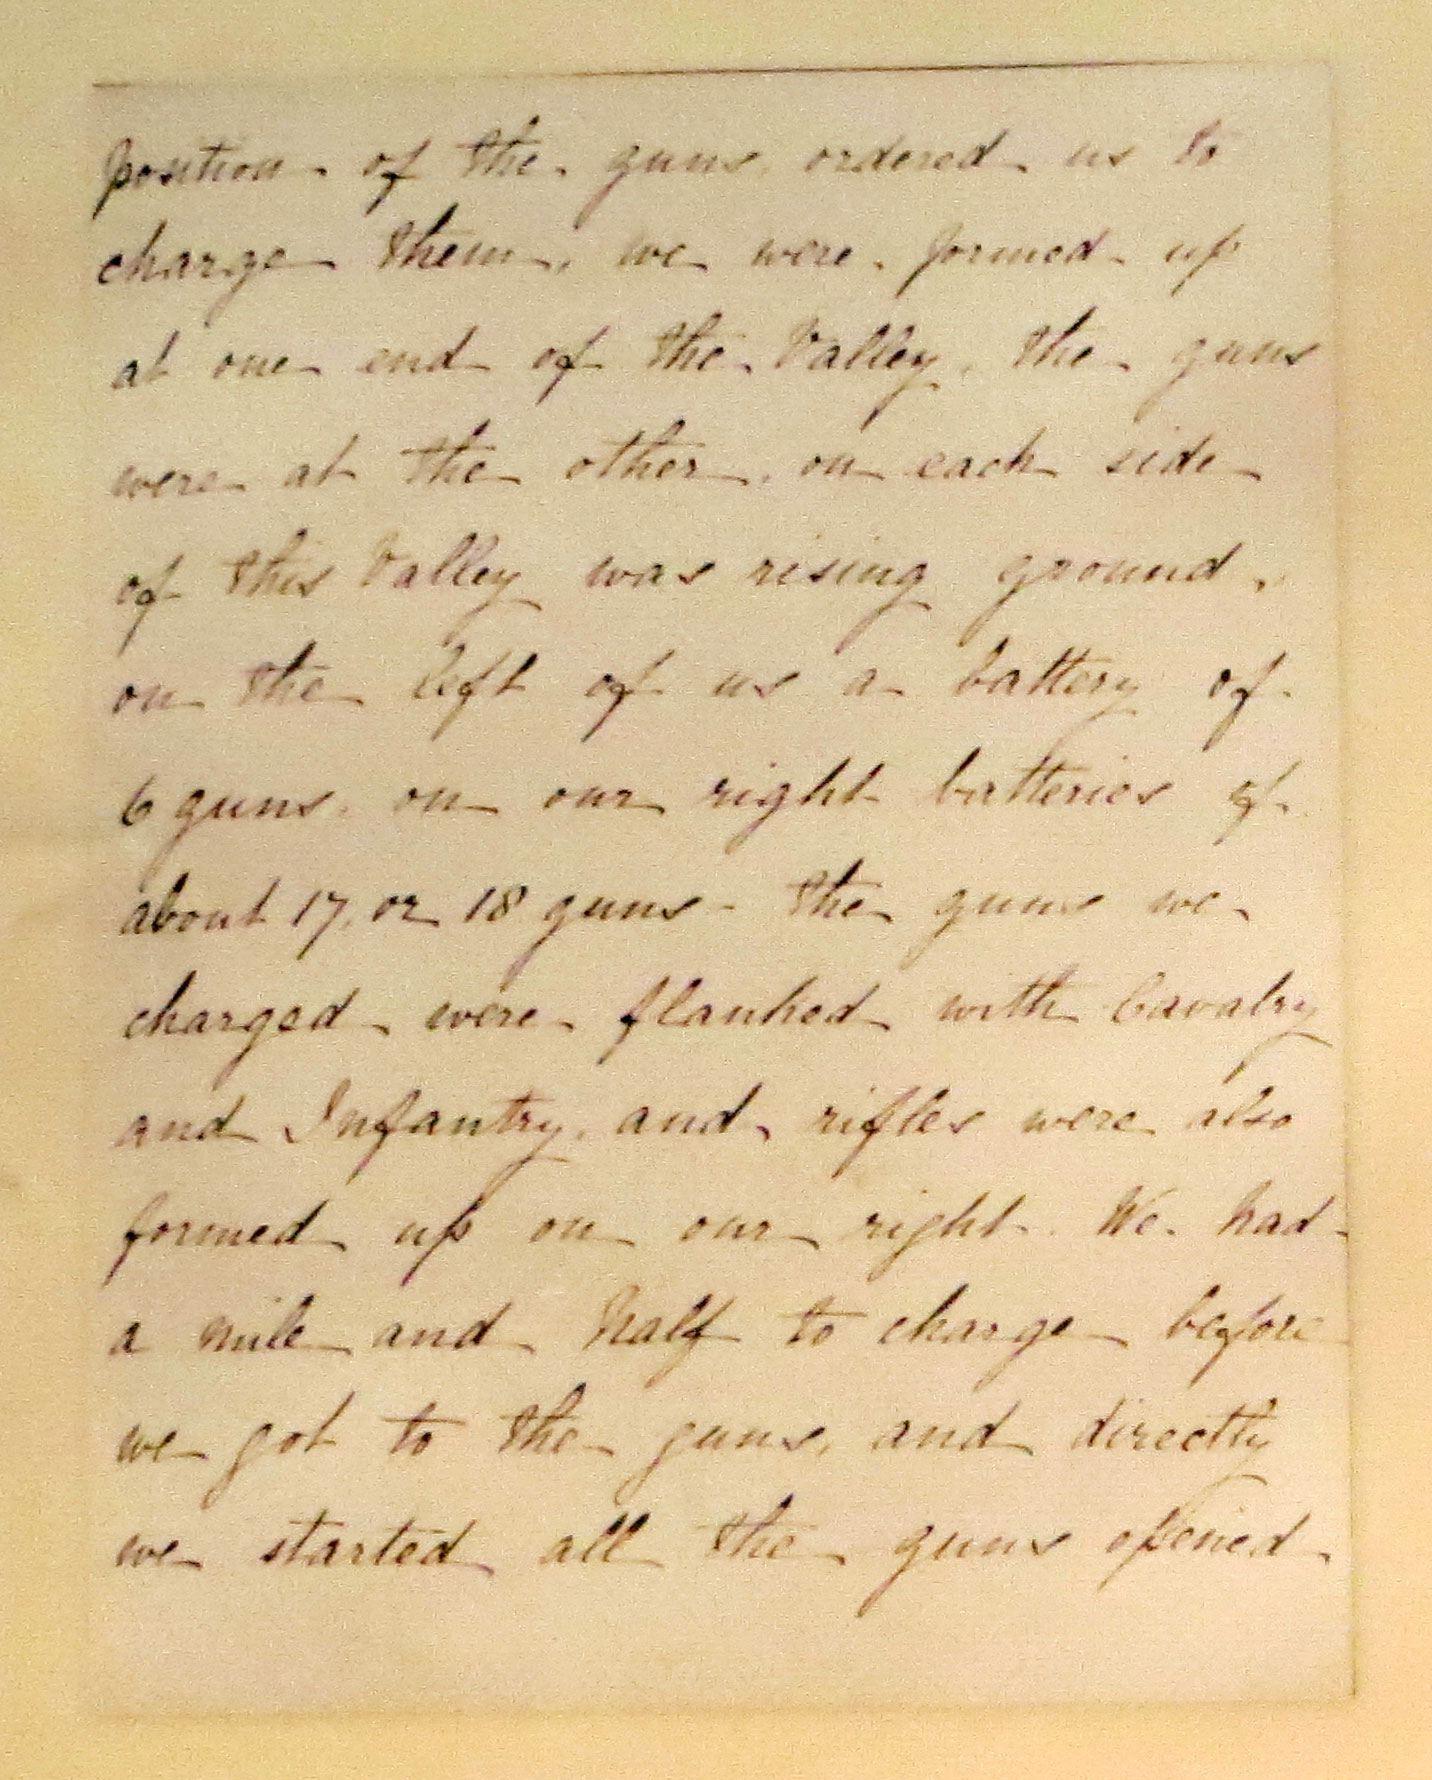 position of the guns, ordered us to
charge them, we were formed up
at one end of the Valley, the guns
were at the other, on each side
of this Valley was rising ground,
on the left of us a battery of
6 guns, on our right batteries of
about 17, or 18 guns - the guns we
charged were flanked with Cavalry
and Infantry, and rifles were also
formed up on our right. We had
a mile and half to charge before
we got to the guns, and directly
we started all the guns opened